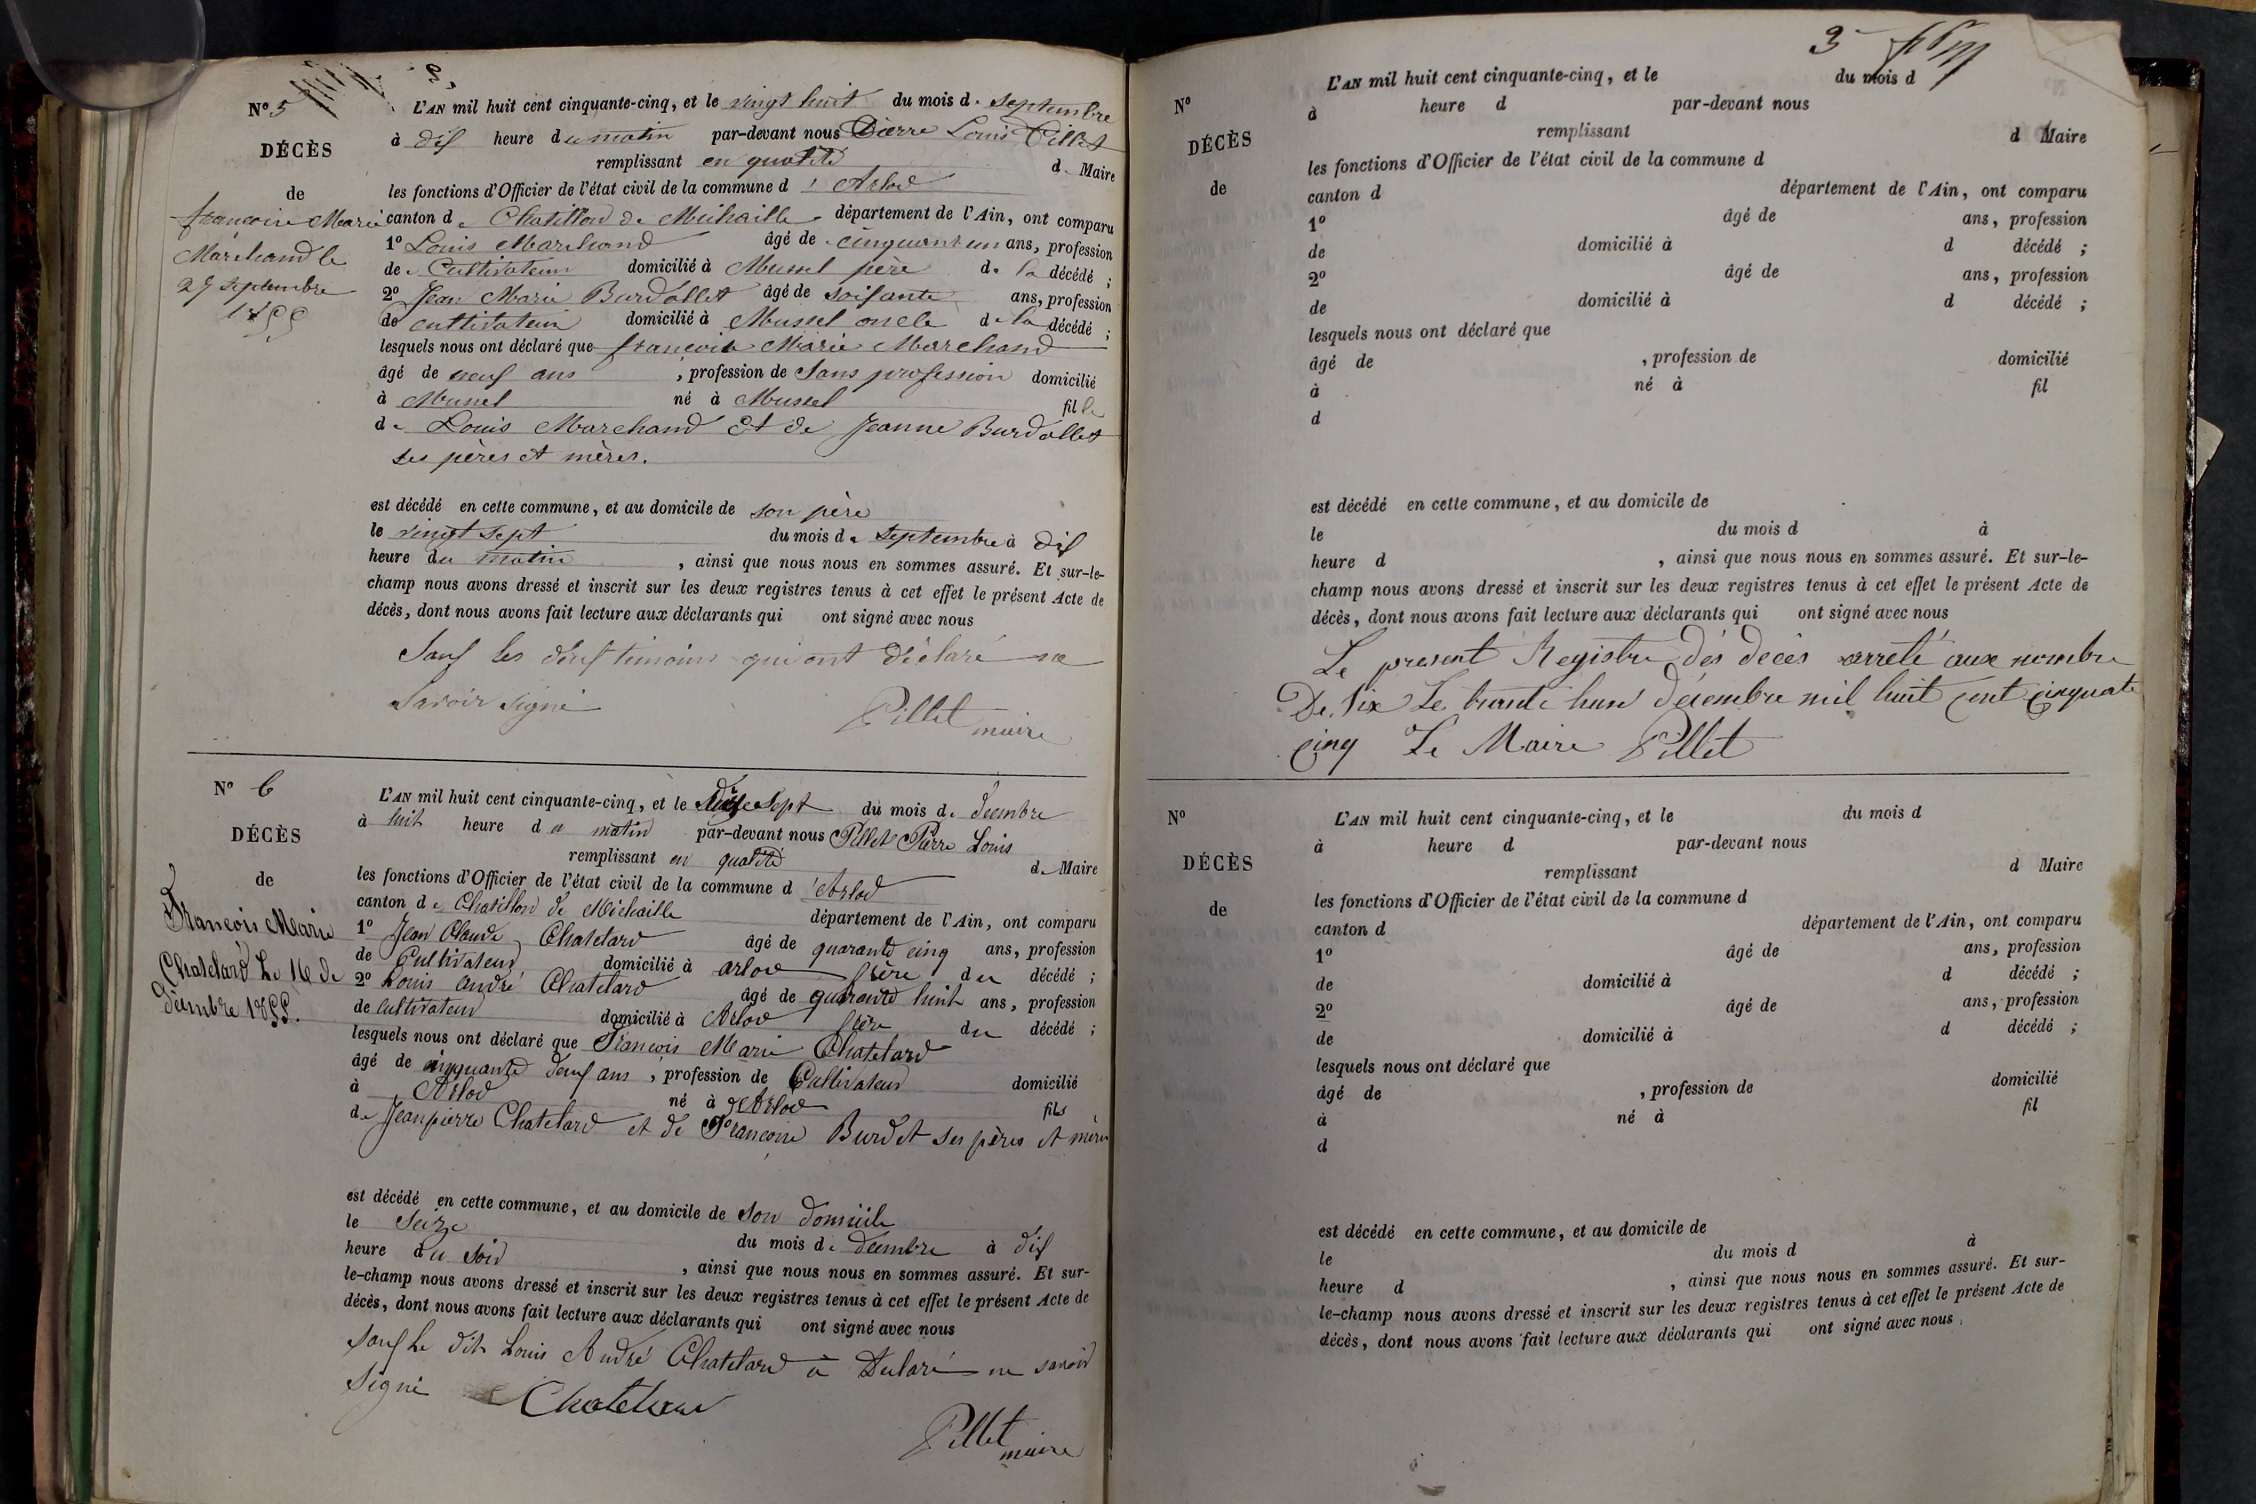 3
N° 5
DÉCÈS
de
francoise Marie
Marchand le
27 septembre
1855
L'AN mil huit cent cinquante-cinq, et le vingt huit du mois de septembre
à dix heure du matin par-devant nous Pierre Louis Pillet
remplissant en qualité de Maire
les fonctions d'Officier de l'état civil de la commune d'Arlod
canton de Chatillon de Michaille département de l'Ain, ont comparu
1° Louis Marchand âgé de cinquant un ans, profession
de Cultivateur domicilié à Mussel père de la décédé ;
2° Jean Marie Burdallet âgé de soixante ans, profession
de cultivateur domicilié à Mussel oncle de la décédé ;
lesquels nous ont déclaré que francoise Marie Marchand
âgé de neuf ans , profession de Sans profession domicilié
à Mussel né à Mussel fille
de Louis Marchand Et de Jeanne Burdallet
ses pères et mères.
est décédé en cette commune, et au domicile de son père
le vingt sept du mois de septembre à dix
heure du matin , ainsi que nous nous en sommes assuré. Et sur-le-
champ nous avons dressé et inscrit sur les deux registres tenus à cet effet le présent Acte de
décès, dont nous avons fait lecture aux déclarants qui ont signé avec nous
Sauf les deux temoins qui ont déclaré ne
savoir signé
Pillet maire
N° 6
DÉCÈS
de
Francois Marie
Chatelard Le 16 de
décembre 1855.
L'AN mil huit cent cinquante-cinq, et le dixe Sept du mois de decembre
à huit heure du matin par-devant nous Pillet Pierre Louis
remplissant en qualité de Maire
les fonctions d'Officier de l'état civil de la commune d'Arlod
canton de Chatillon de Michaille département de l'Ain, ont comparu
1° Jean Claude Chatelard âgé de quarante cinq ans, profession
de Cultivateur domicilié à arlod frère du décédé ;
2° Louis André Chatelard âgé de quarante huit ans, profession
de cultivateur domicilié à Arlod frère du décédé ;
lesquels nous ont déclaré que François Marie Chatelard
âgé de cinquante deux ans , profession de Cultivateur domicilié
à Arlod né à Arlod fils
de Jeanpierre Chatelard et de Francoise Burdet ses pères et mères
est décédé en cette commune, et au domicile de son domicile
le Seize du mois de decembre à dix
heure du soir , ainsi que nous nous en sommes assuré. Et sur-
le-champ nous avons dressé et inscrit sur les deux registres tenus à cet effet le présent Acte de
décès, dont nous avons fait lecture aux déclarants qui ont signé avec nous
sauf le dit Louis André Chatelard à Declaré ne savoir
signé Chatelard
Pillet maire
3
N°
DÉCÈS
de
L'AN mil huit cent cinquante-cinq, et le du mois d
à heure d par-devant nous
remplissant d Maire
les fonctions d'Officier de l'état civil de la commune d
canton d département de l'Ain, ont comparu
1° âgé de ans, profession
de domicilié à d décédé ;
2° âgé de ans, profession
de domicilié à d décédé ;
lesquels nous ont déclaré que
âgé de , profession de domicilié
à né à fil
d
est décédé en cette commune, et au domicile de
le du mois d à
heure d , ainsi que nous nous en sommes assuré. Et sur-le-
champ nous avons dressé et inscrit sur les deux registres tenus à cet effet le présent Acte de
décès, dont nous avons fait lecture aux déclarants qui ont signé avec nous
Le present Registre des decès arreté aux nombre
De Six Le trante hun décembre mil huit cent cinquate
cinq Le Maire Pillet
N°
DÉCÈS
de
L'AN mil huit cent cinquante-cinq, et le du mois d
à heure d par-devant nous
remplissant d Maire
les fonctions d'Officier de l'état civil de la commune d
canton d département de l'Ain, ont comparu
1° âgé de ans, profession
de domicilié à d décédé ;
2° âgé de ans, profession
de domicilié à d décédé ;
lesquels nous ont déclaré que
âgé de , profession de domicilié
à né à fil
d
est décédé en cette commune, et au domicile de
le du mois d à
heure d , ainsi que nous nous en sommes assuré. Et sur-
le-champ nous avons dressé et inscrit sur les deux registres tenus à cet effet le présent Acte de
décès, dont nous avons fait lecture aux déclarants qui ont signé avec nous